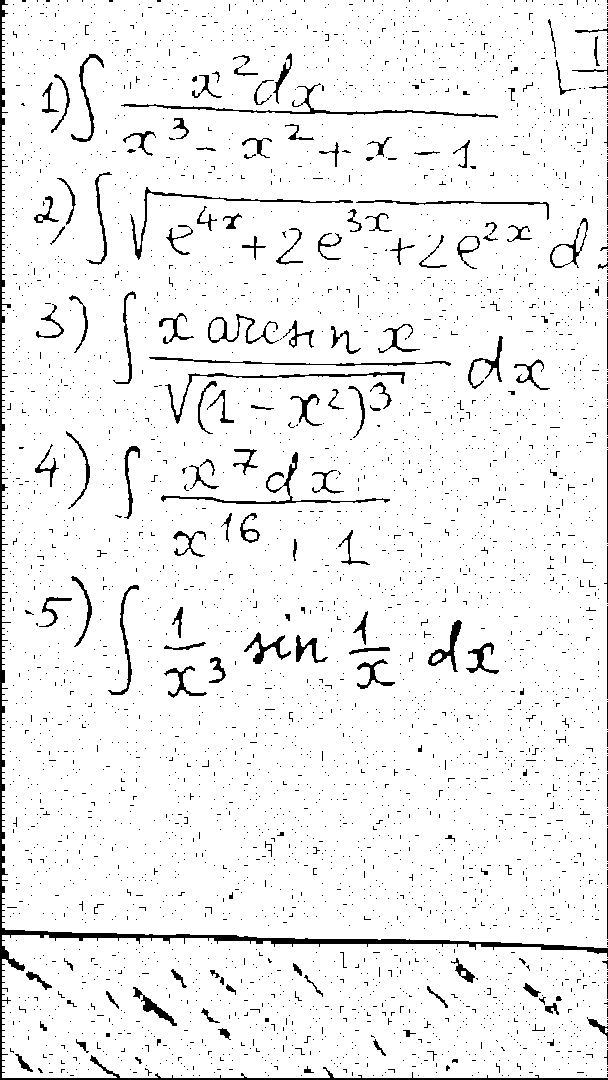 I
1) ∫ x²dx / (x³ - x² + x - 1)
2) ∫ √(e^{4x} + 2e^{3x} + 2e^{2x}) d
3) ∫ x arcsin x / √((1 - x²)³) dx
4) ∫ x⁷dx / x¹⁶ 1
5) ∫ 1/x³ sin 1/x dx